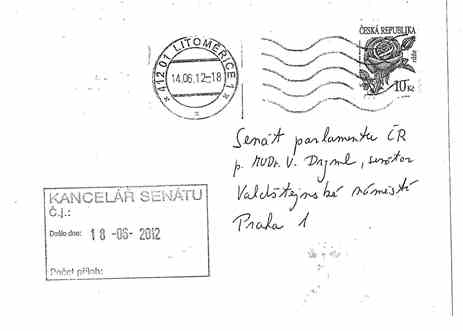 412 01 LITOMĚŘICE 1
14.06.12-18
ČESKÁ REPUBLIKA
růže
10 Kč
Senát parlamentu ČR
p. MUDr. V. Dryml, senátor
Valdštejnské náměstí
Praha 1
KANCELÁŘ SENÁTU
Č.j.:
Došlo dne: 18 -06- 2012
Počet příloh: